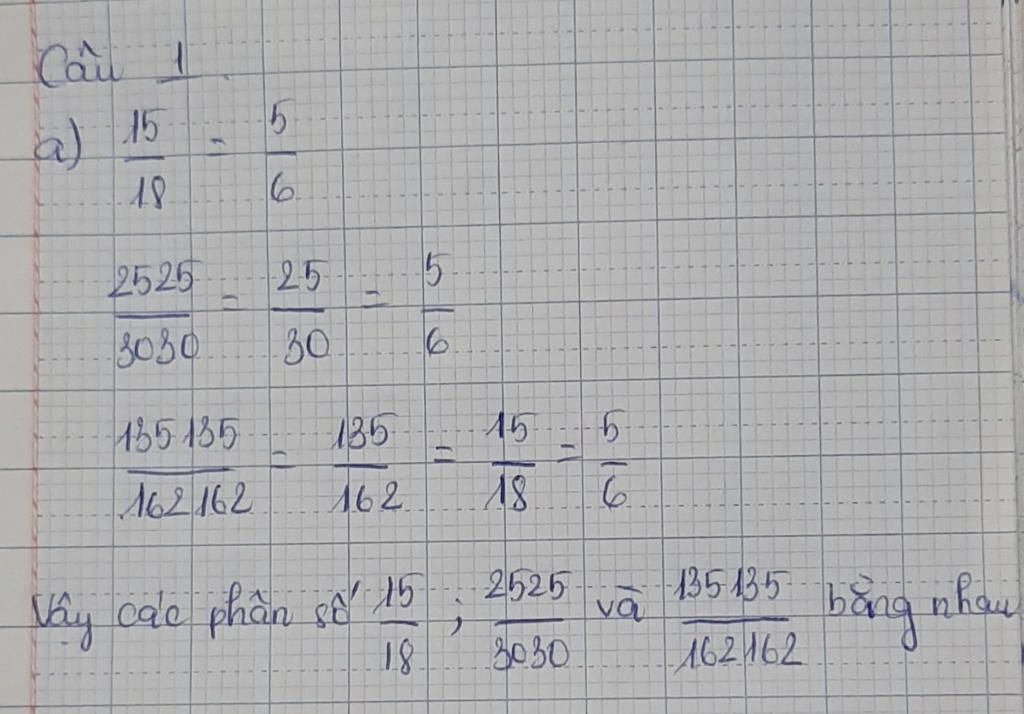 Câu 1
a) 15/18 = 5/6
2525/3030 = 25/30 = 5/6
135135/162162 = 135/162 = 15/18 = 5/6
Vậy các phân số 15/18 ; 2525/3030 và 135135/162162 bằng nhau